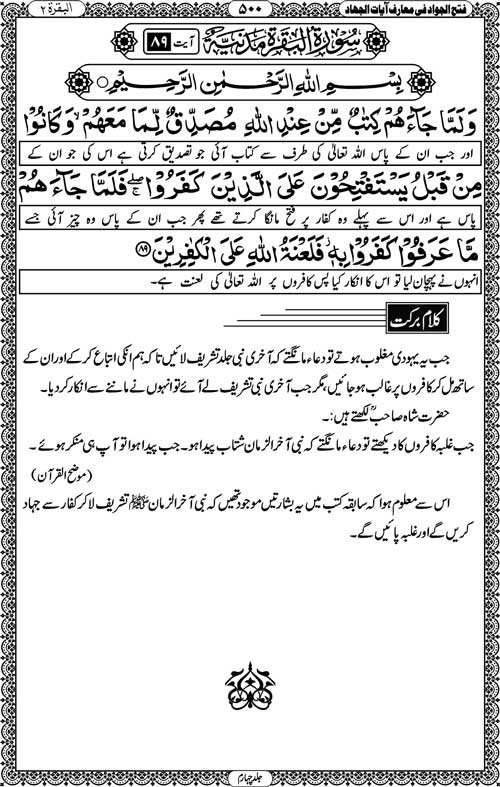 فتح الجواد فی معارف آیات الجهاد ۵۰۰ البقرة ۲
سُوْرَةُ الْبَقَرَةِ مَدَنِيَّةٌ آیت ۸۹
بِسْمِ اللهِ الرَّحْمٰنِ الرَّحِيْمِ
وَلَمَّا جَآءَهُمْ كِتٰبٌ مِّنْ عِنْدِ اللهِ مُصَدِّقٌ لِّمَا مَعَهُمْ ۙ وَكَانُوْا
اور جب ان کے پاس اللہ تعالیٰ کی طرف سے کتاب آئی جو تصدیق کرتی ہے اس کی جو ان کے
مِنْ قَبْلُ يَسْتَفْتِحُوْنَ عَلَى الَّذِيْنَ كَفَرُوْا ۚ فَلَمَّا جَآءَهُمْ
پاس ہے اور اس سے پہلے وہ کفار پر فتح مانگا کرتے تھے پھر جب ان کے پاس وہ چیز آئی جسے
مَّا عَرَفُوْا كَفَرُوْا بِهٖ ۫ فَلَعْنَةُ اللهِ عَلَى الْكٰفِرِيْنَ ۸۹
انہوں نے پہچان لیا تو اس کا انکار کیا پس کافروں پر اللہ تعالیٰ کی لعنت ہے۔
کلام برکت
جب یہ یہودی مغلوب ہوتے تو دعاء مانگتے کہ آخری نبی جلد تشریف لائیں تاکہ ہم انکی اتباع کرکے اور ان کے
ساتھ مل کر کافروں پر غالب ہو جائیں، مگر جب آخری نبی تشریف لے آئے تو انہوں نے ماننے سے انکار کر دیا۔
حضرت شاہ صاحبؒ لکھتے ہیں:۔
جب غلبہ کافروں کا دیکھتے تو دعاء مانگتے کہ نبی آخر الزمان شتاب پیدا ہو۔ جب پیدا ہوا تو آپ ہی منکر ہوئے۔
(موضح القرآن)
اس سے معلوم ہوا کہ سابقہ کتب میں یہ بشارتیں موجود تھیں کہ نبی آخر الزمان ﷺ تشریف لا کر کفار سے جہاد
کریں گے اور غلبہ پائیں گے۔
جلد چہارم